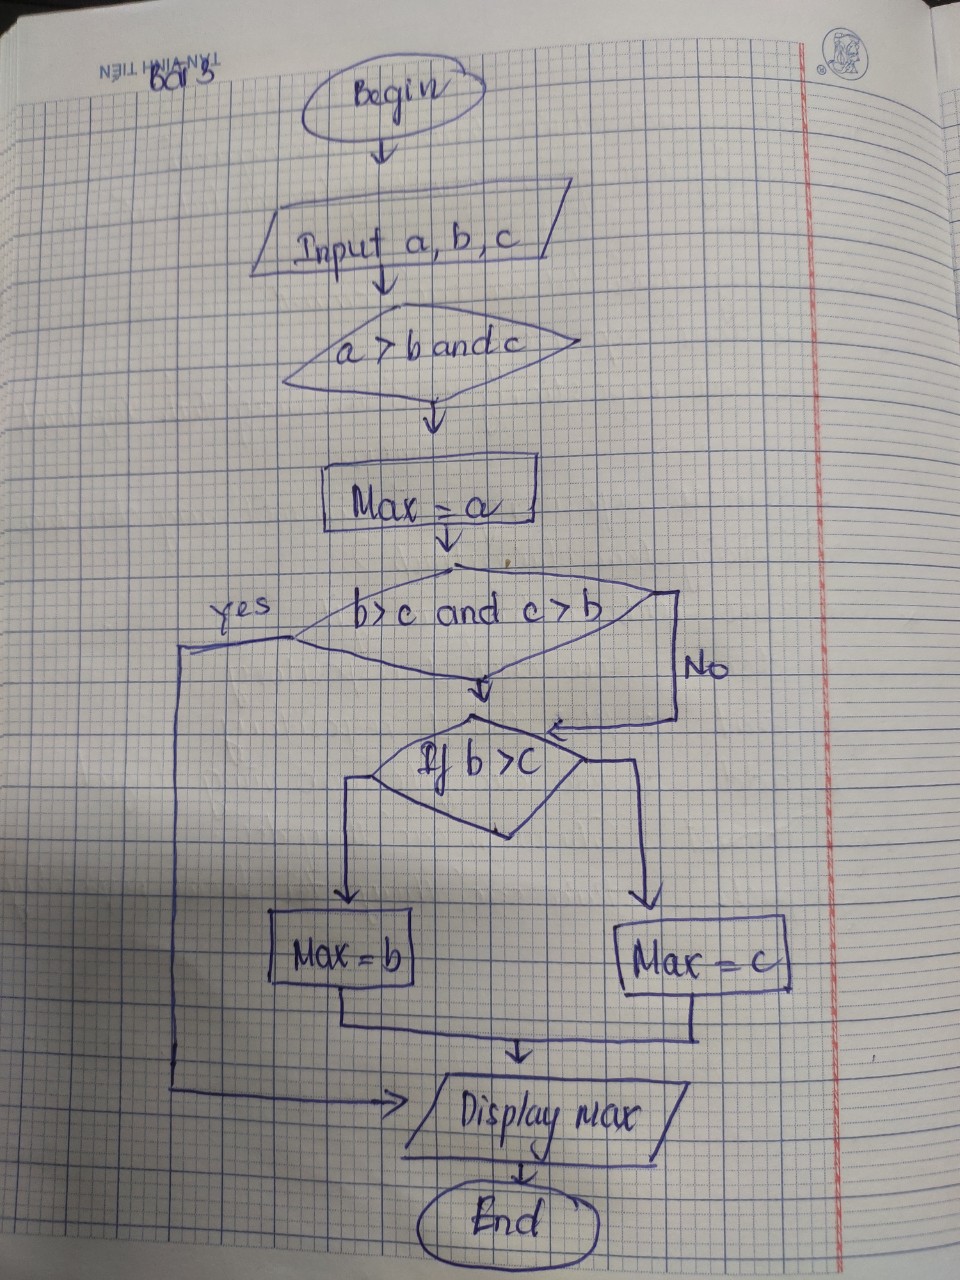 TÂN VĨNH TIẾN
Bài 3
Begin
Input a, b, c
a > b and c
Max = a
yes
b > c and c > b
No
If b > C
Max = b
Max = c
Display Max
End
®